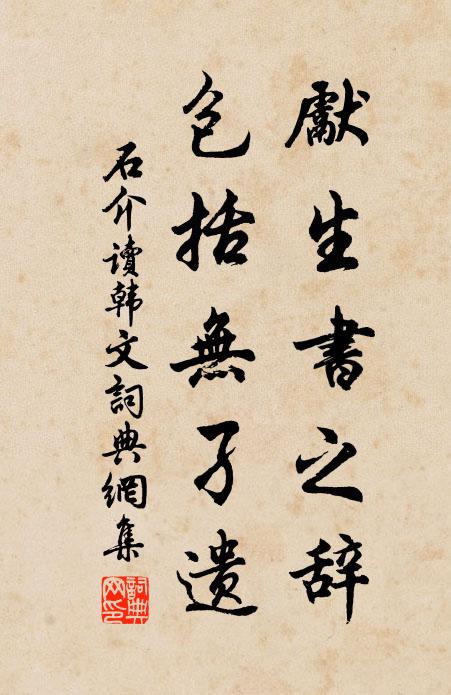 獻生書之辞
包括無孑遺
石介讀韩文詞典網集
詞典网印